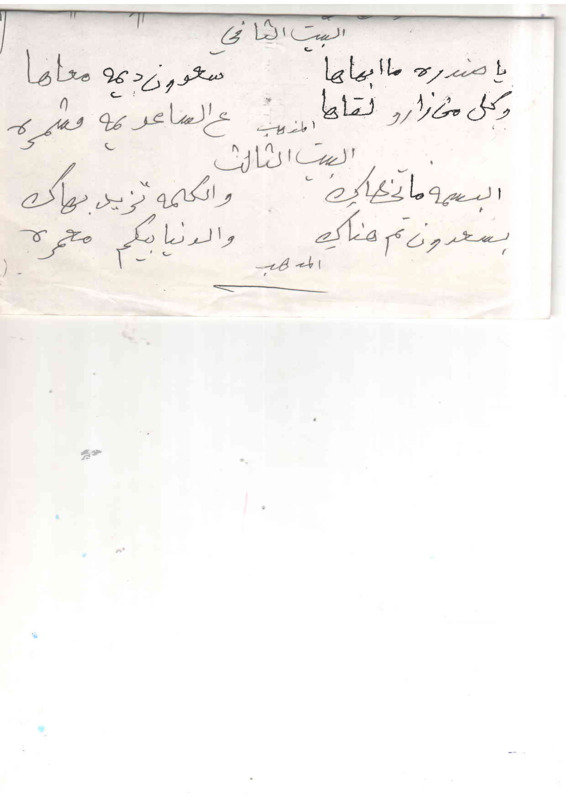 البيت الثاني
يا صندره ما ابهاها سعدون ديمه معاها
وكل من زارو لقاها ع الساعديه مشمره
المذهب
البيت الثالث
البسمه ما تخطاك والكلمه تزيد بهاك
بسعدون تم هناك والدنيا بيكم معمره
المذهب